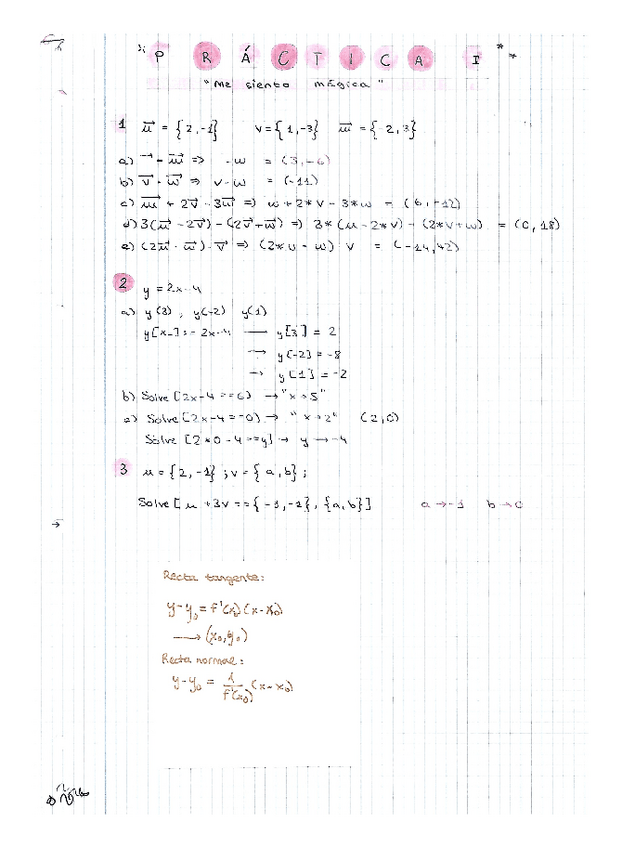 PRÁCTICA I
"Me siento mágica"
1 u = {2,-1} v = {1,-3} w = {-2,3}
a) - w => -w = (3,-6)
b) v · w => v·w = (-11)
c) u + 2v - 3w => u + 2*v - 3*w = (6,-12)
d) 3(u - 2v) - (2v + w) => 3*(u - 2*v) - (2*v + w) = (0,18)
e) (2u · w) · v => (2*u · w) v = (-14,42)
2 y = 2x-4
a) y(3), y(-2) y(1)
y[x_] := 2x-4 → y[3] = 2
→ y[-2] = -8
→ y[1] = -2
b) Solve [2x-4==6) → "x→5"
c) Solve [2x-4==0) → "x→2" (2,0)
Solve [2*0-4==y] → y → -4
3 u = {2,-1} ; v = {a,b} ;
Solve [u +3v =={-1,-1}, {a,b}] a → -1 b → 0
→
Recta tangente:
y-y₀ = f'(x₀)(x-x₀)
→ (x₀,y₀)
Recta normal:
y-y₀ = 1/f'(x₀) (x-x₀)